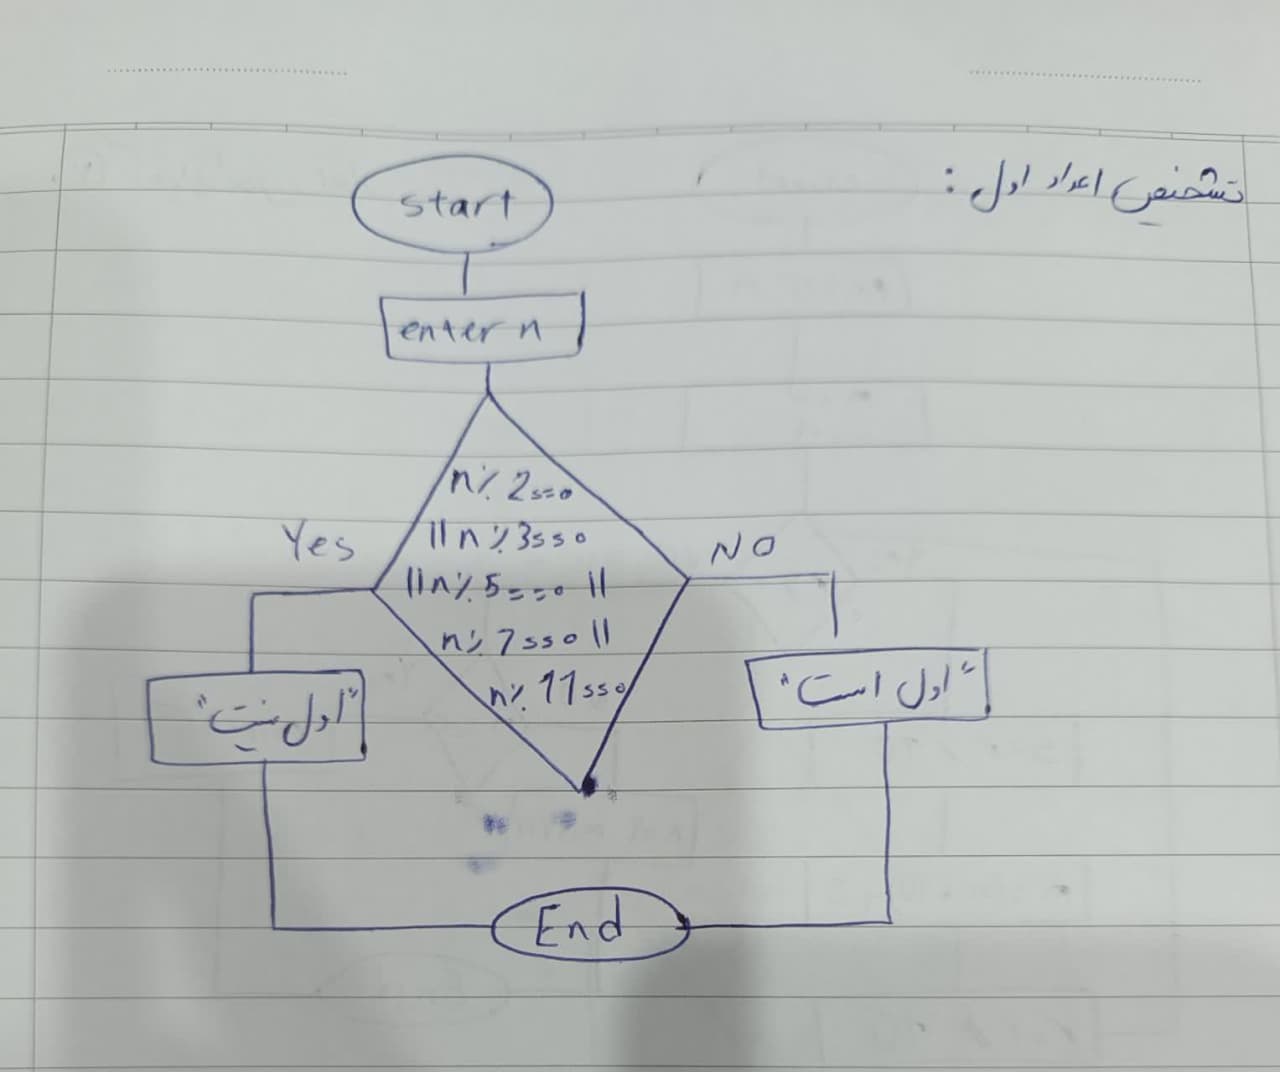 تشخیص اعداد اول :
start
enter n
n٪ 2==0
|| n٪3==0
|| n٪5==0 ||
n٪ 7==0 ||
n٪ 11==0
Yes
NO
"اول نیست"
"اول است"
End